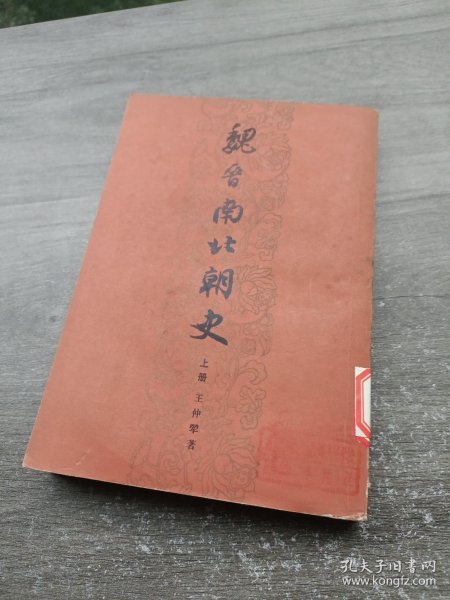 魏晋南北朝史
上册 王仲荦著
孔夫子旧书网
www.kongfz.com